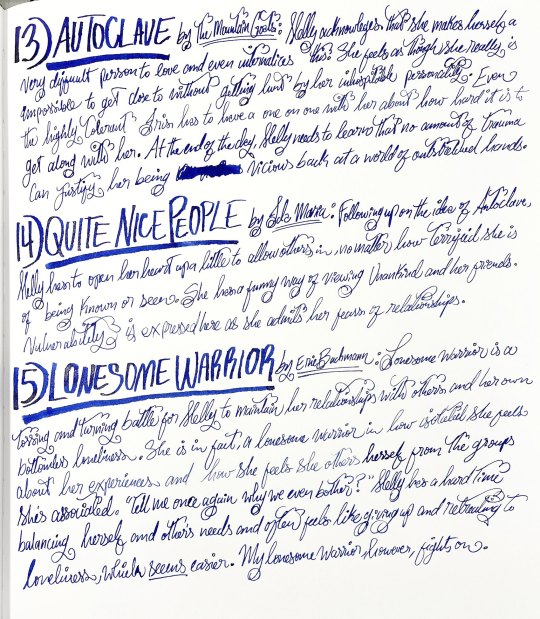 13) AUTOCLAVE by The Mountain Goats: Shelly acknowledges that she makes herself a
very difficult person to love and even internalizes this. She feels as though she really is
impossible to get close to without getting hurt by her inhospitable personality. Even
the highly tolerant Iris has to have a one on one with her about how hard it is to
get along with her. At the end of the day, Shelly needs to learn that no amount of trauma
can justify her being vicious back at a world of outstretched hands.
14) QUITE NICE PEOPLE by Solo Mariá: Following up on the idea of Autoclave,
Shelly has to open her heart up a little to allow others in, no matter how terrified she is
of being known or seen. She has a funny way of viewing humankind and her friends.
Vulnerability is expressed here as she admits her fears of relationships.
15) LONESOME WARRIOR by Eric Bachmann: Lonesome Warrior is a
tossing and turning battle for Shelly to maintain her relationships with others and her own
bottomless loneliness. She is in fact, a lonesome warrior in how isolated she feels
about her experiences and how she feels she others herself from the groups
she's associated. "Tell me once again why we even bother?" Shelly has a hard time
balancing herself and others needs and often feels like giving up and retreating to
loneliness, which seems easier. My lonesome warrior, however, fights on.